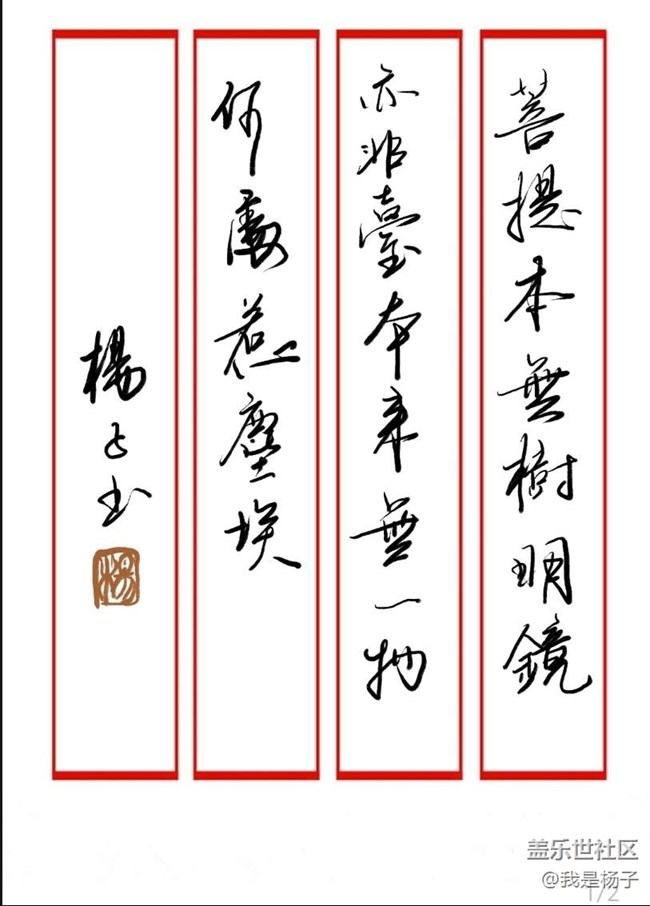 菩提本無樹明鏡
亦非臺本来無一物
何處惹塵埃
楊子书
楊
盖乐世社区
@我是杨子
1/2